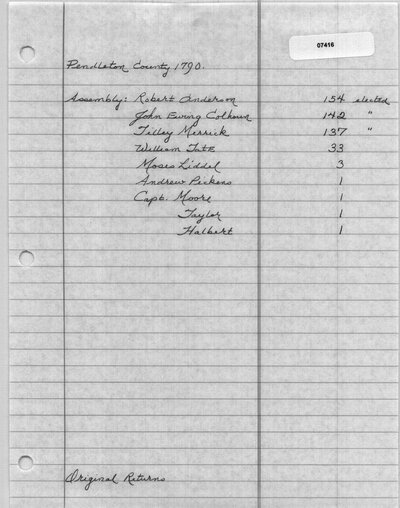 07416
Pendleton County 1790.
Assembly: Robert Anderson 154 elected
John Ewing Colhoun 142 "
Tilley Merrick 137 "
William Tate 33
Moses Liddel 3
Andrew Pickens 1
Capt. Moore 1
Taylor 1
Halbert 1
Original Returns